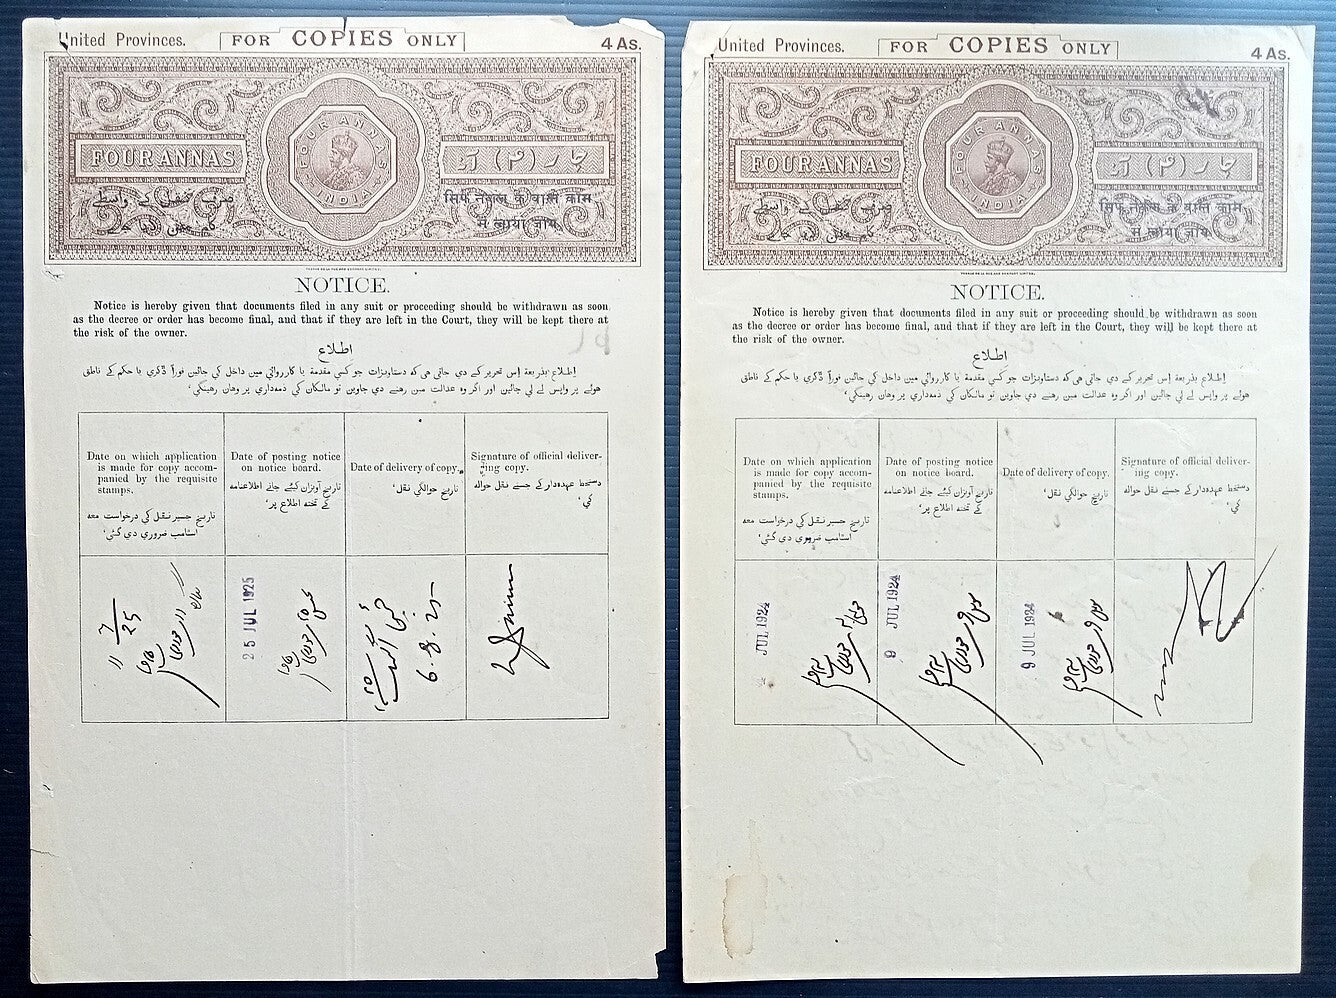 United Provinces. FOR COPIES ONLY 4 As.
FOUR ANNAS
FOUR ANNAS
INDIA
چار (۴) آنہ
صرف نقل کے واسطے
सिर्फ नक़ल के वास्ते काम
में लाया जाय
NOTICE.
Notice is hereby given that documents filed in any suit or proceeding should be withdrawn as soon
as the decree or order has become final, and that if they are left in the Court, they will be kept there at
the risk of the owner.
اطلاع
اطلاع بذریعۂ اِس تحریر کے دی جاتی هی که دستاویزات جو کسی مقدمۂ یا کارروائی میں داخل کی جائیں فوراً ڈگری یا حکم کے ناطق
هوئے پر واپس لے لی جائیں اور اگر وہ عدالت میں رهنے دی جاویں تو مالکان کی ذمهداری پر وهاں رهینگی،
Date on which application
is made for copy accom-
panied by the requisite
stamps.
تاریخ جسپر نقل کی درخواست معه
استامپ ضروری دی گئی،
Date of posting notice
on notice board.
تاریخ آویزان کیئے جانے اطلاعنامه
کے تخته اطلاع پر،
Date of delivery of copy.
تاریخ حوالگی نقل،
Signature of official deliver-
ing copy.
دستخط عهدهدار کے جسنے نقل حواله
کی،
11/7/25
25 JUL 1925
6.8.25
United Provinces. FOR COPIES ONLY 4 As.
FOUR ANNAS
FOUR ANNAS
INDIA
چار (۴) آنہ
صرف نقل کے واسطے
सिर्फ नक़ल के वास्ते काम
में लाया जाय
NOTICE.
Notice is hereby given that documents filed in any suit or proceeding should be withdrawn as soon
as the decree or order has become final, and that if they are left in the Court, they will be kept there at
the risk of the owner.
اطلاع
اطلاع بذریعۂ اِس تحریر کے دی جاتی هی که دستاویزات جو کسی مقدمۂ یا کارروائی میں داخل کی جائیں فوراً ڈگری یا حکم کے ناطق
هوئے پر واپس لے لی جائیں اور اگر وہ عدالت میں رهنے دی جاویں تو مالکان کی ذمهداری پر وهاں رهینگی،
Date on which application
is made for copy accom-
panied by the requisite
stamps.
تاریخ جسپر نقل کی درخواست معه
استامپ ضروری دی گئی،
Date of posting notice
on notice board.
تاریخ آویزان کیئے جانے اطلاعنامه
کے تخته اطلاع پر،
Date of delivery of copy.
تاریخ حوالگی نقل،
Signature of official deliver-
ing copy.
دستخط عهدهدار کے جسنے نقل حواله
کی،
JUL 1924
9 JUL 1924
9 JUL 1924